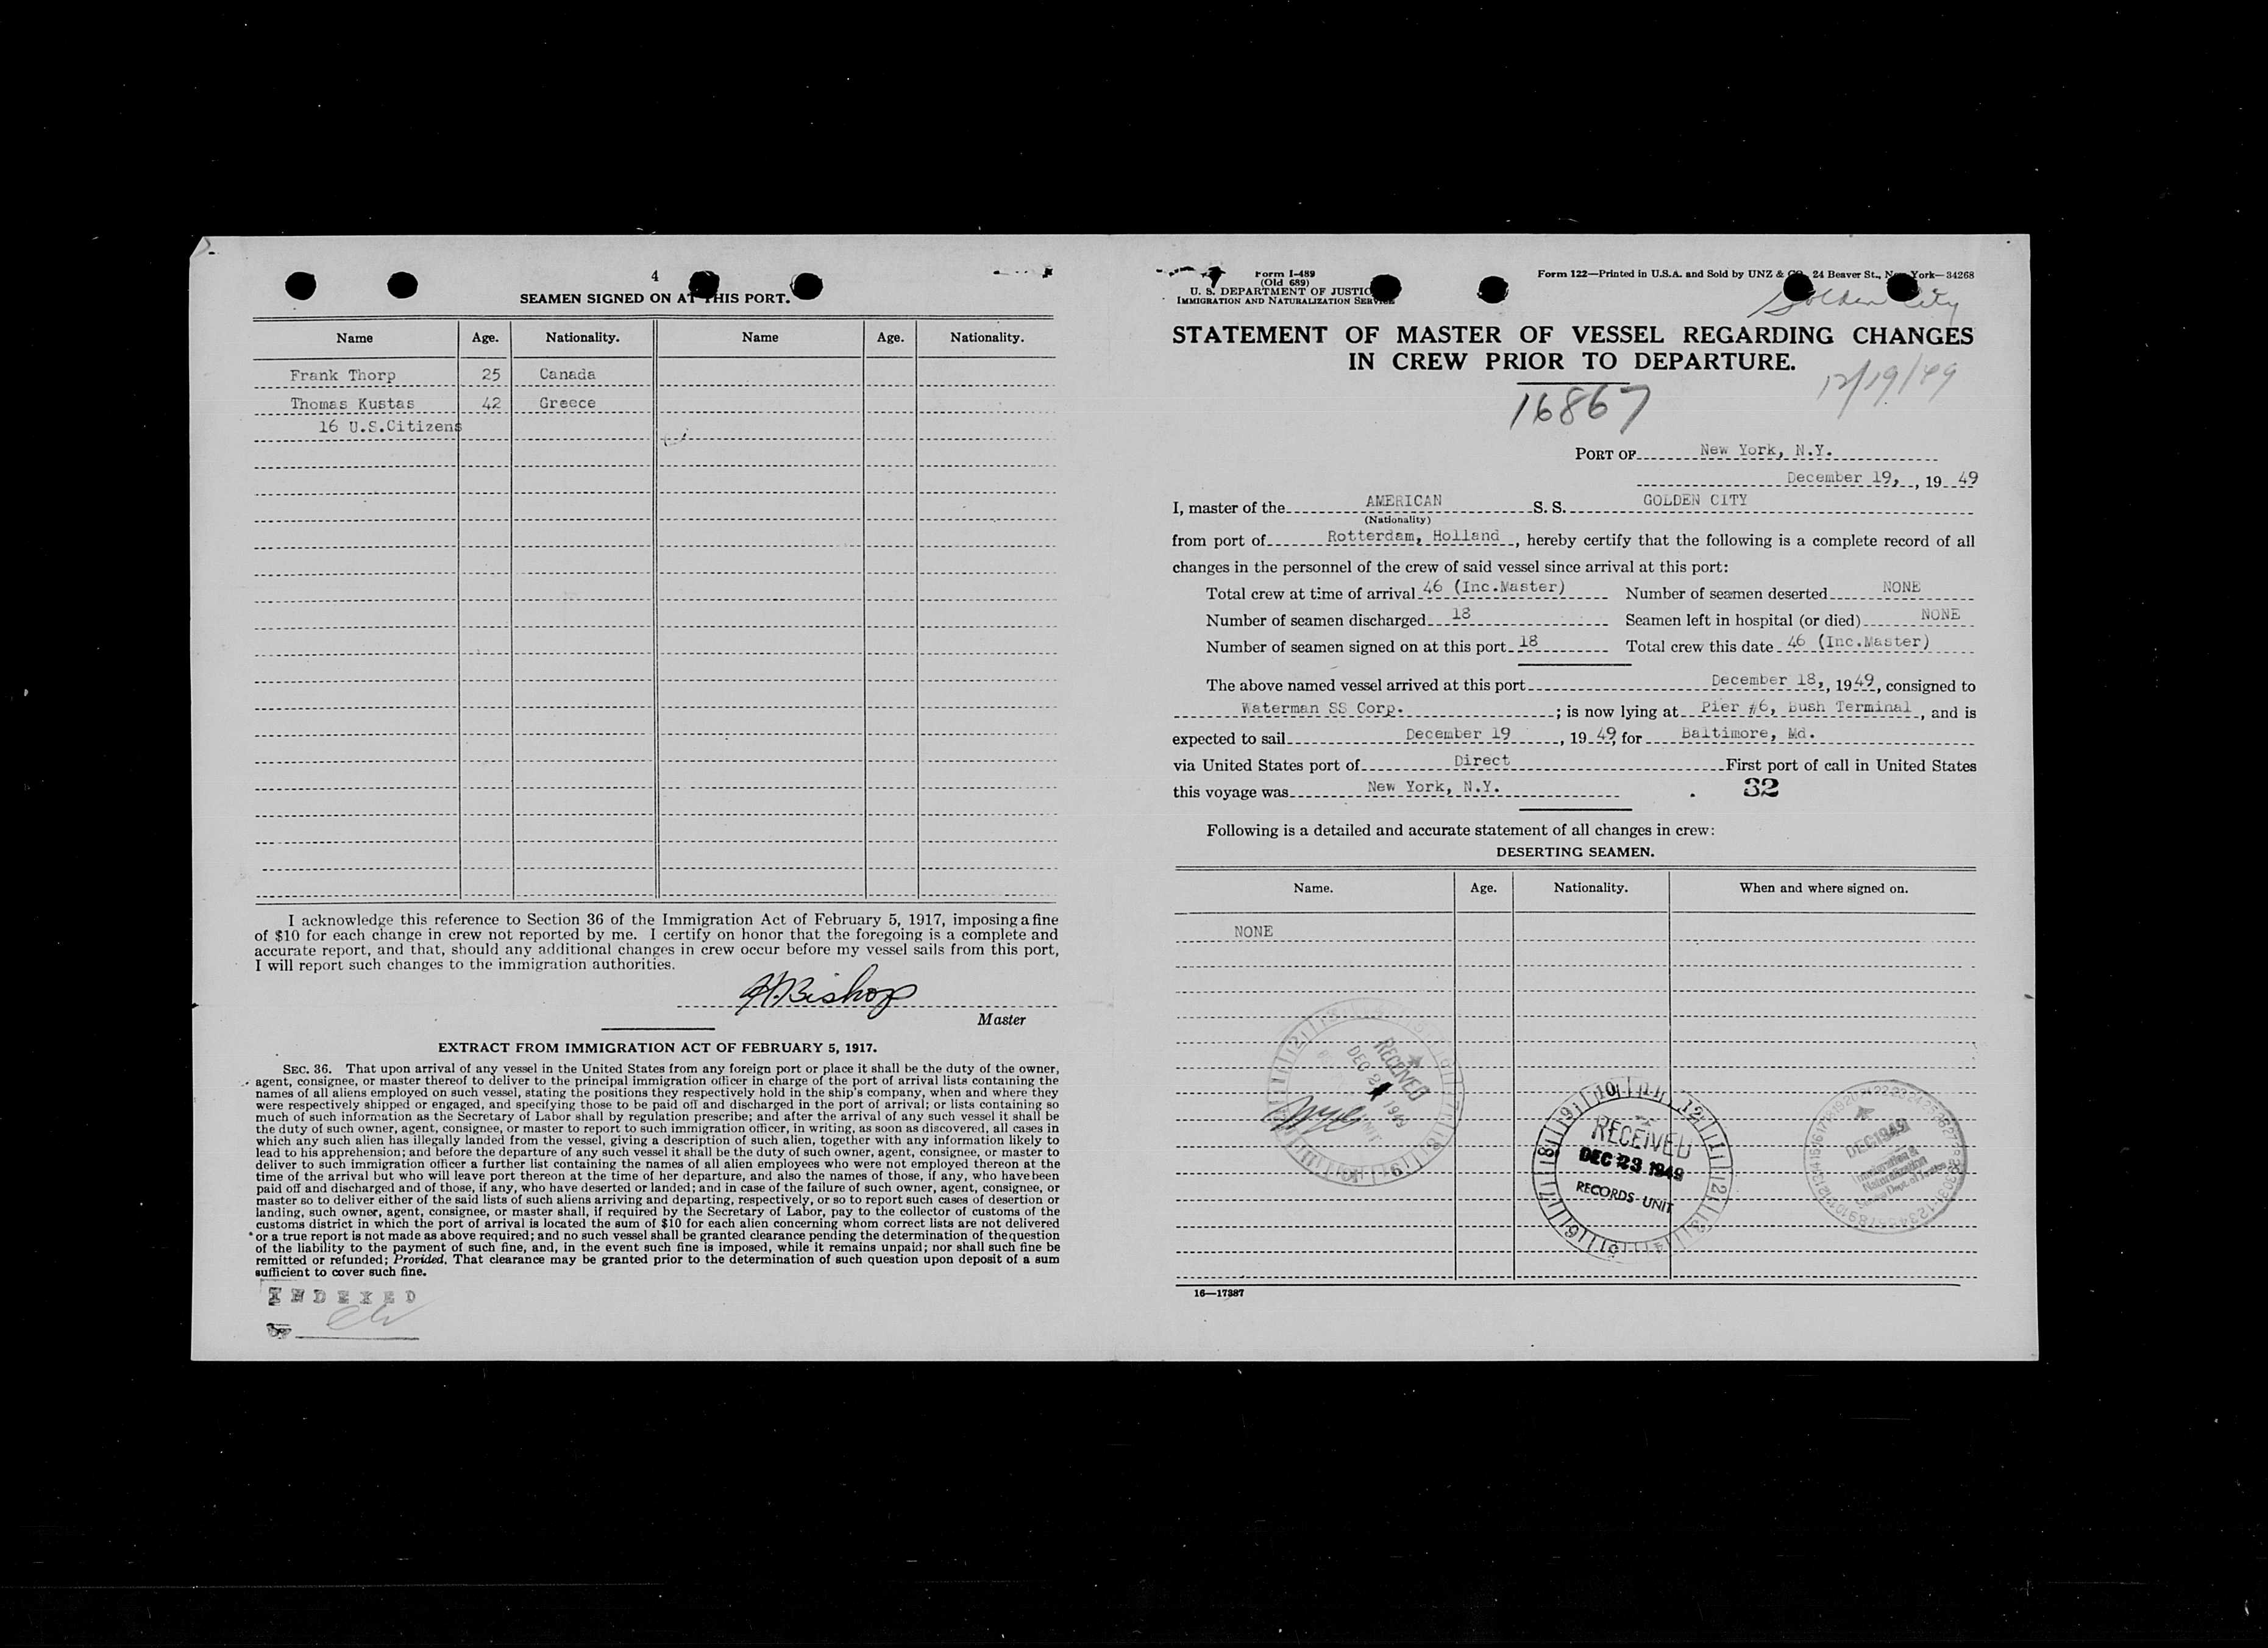 4
SEAMEN SIGNED ON AT THIS PORT.
Name Age. Nationality. Name Age. Nationality.
Frank Thorp 25 Canada
Thomas Kustas 42 Greece
16 U.S.Citizens
I acknowledge this reference to Section 36 of the Immigration Act of February 5, 1917, imposing a fine
of $10 for each change in crew not reported by me. I certify on honor that the foregoing is a complete and
accurate report, and that, should any additional changes in crew occur before my vessel sails from this port,
I will report such changes to the immigration authorities.
H Bishop
Master
EXTRACT FROM IMMIGRATION ACT OF FEBRUARY 5, 1917.
SEC. 36. That upon arrival of any vessel in the United States from any foreign port or place it shall be the duty of the owner,
agent, consignee, or master thereof to deliver to the principal immigration officer in charge of the port of arrival lists containing the
names of all aliens employed on such vessel, stating the positions they respectively hold in the ship's company, when and where they
were respectively shipped or engaged, and specifying those to be paid off and discharged in the port of arrival; or lists containing so
much of such information as the Secretary of Labor shall by regulation prescribe; and after the arrival of any such vessel it shall be
the duty of such owner, agent, consignee, or master to report to such immigration officer, in writing, as soon as discovered, all cases in
which any such alien has illegally landed from the vessel, giving a description of such alien, together with any information likely to
lead to his apprehension; and before the departure of any such vessel it shall be the duty of such owner, agent, consignee, or master to
deliver to such immigration officer a further list containing the names of all alien employees who were not employed thereon at the
time of the arrival but who will leave port thereon at the time of her departure, and also the names of those, if any, who have been
paid off and discharged and of those, if any, who have deserted or landed; and in case of the failure of such owner, agent, consignee, or
master so to deliver either of the said lists of such aliens arriving and departing, respectively, or so to report such cases of desertion or
landing, such owner, agent, consignee, or master shall, if required by the Secretary of Labor, pay to the collector of customs of the
customs district in which the port of arrival is located the sum of $10 for each alien concerning whom correct lists are not delivered
or a true report is not made as above required; and no such vessel shall be granted clearance pending the determination of the question
of the liability to the payment of such fine, and, in the event such fine is imposed, while it remains unpaid; nor shall such fine be
remitted or refunded; Provided, That clearance may be granted prior to the determination of such question upon deposit of a sum
sufficient to cover such fine.
INDEXED
Form I-489
(Old 689)
U. S. DEPARTMENT OF JUSTICE
IMMIGRATION AND NATURALIZATION SERVICE
Form 122—Printed in U.S.A. and Sold by UNZ & CO. 24 Beaver St., New York—34268
Golden City
STATEMENT OF MASTER OF VESSEL REGARDING CHANGES
IN CREW PRIOR TO DEPARTURE.
12/19/49
16867
PORT OF New York, N.Y.
December 19, , 19 49
I, master of the AMERICAN S. S. GOLDEN CITY
(Nationality)
from port of Rotterdam, Holland , hereby certify that the following is a complete record of all
changes in the personnel of the crew of said vessel since arrival at this port:
Total crew at time of arrival 46 (Inc.Master) Number of seamen deserted NONE
Number of seamen discharged 18 Seamen left in hospital (or died) NONE
Number of seamen signed on at this port 18 Total crew this date 46 (Inc.Master)
The above named vessel arrived at this port December 18, , 19 49, consigned to
Waterman SS Corp. ; is now lying at Pier #6, Bush Terminal , and is
expected to sail December 19 , 19 49, for Baltimore, Md.
via United States port of Direct First port of call in United States
this voyage was New York, N.Y. . 32
Following is a detailed and accurate statement of all changes in crew:
DESERTING SEAMEN.
Name. Age. Nationality. When and where signed on.
NONE
RECEIVED
DEC 1949
RECEIVED
DEC 23 1949
RECORDS UNIT
DEC 1949
Immigration &
Naturalization
Service Dept. of Justice
16—17387